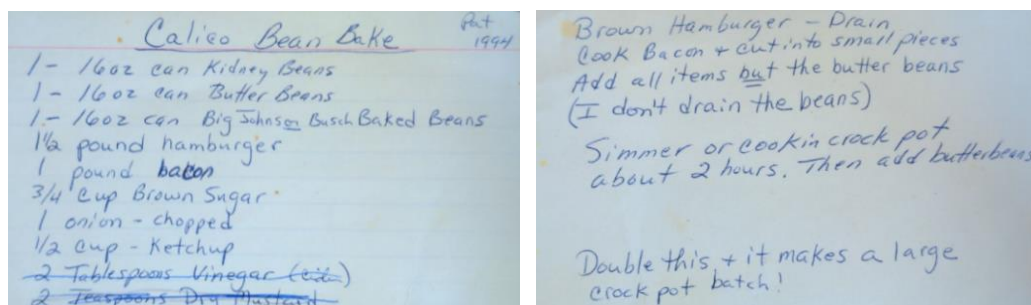 Calico Bean Bake
Pat
1994
1 - 16oz can Kidney Beans
1 - 16oz can Butter Beans
1 - 16oz can Big Johnson Busch Baked Beans
1½ pound hamburger
1 pound bacon
3/4 cup Brown Sugar
1 onion - chopped
1/2 cup - Ketchup
2 Tablespoons Vinegar (cider)
2 Teaspoons Dry Mustard
Brown Hamburger - Drain
Cook Bacon + cut into small pieces
Add all items but the butter beans
(I don't drain the beans)
Simmer or cook in crock pot
about 2 hours. Then add butterbeans
Double this + it makes a large
crock pot batch!